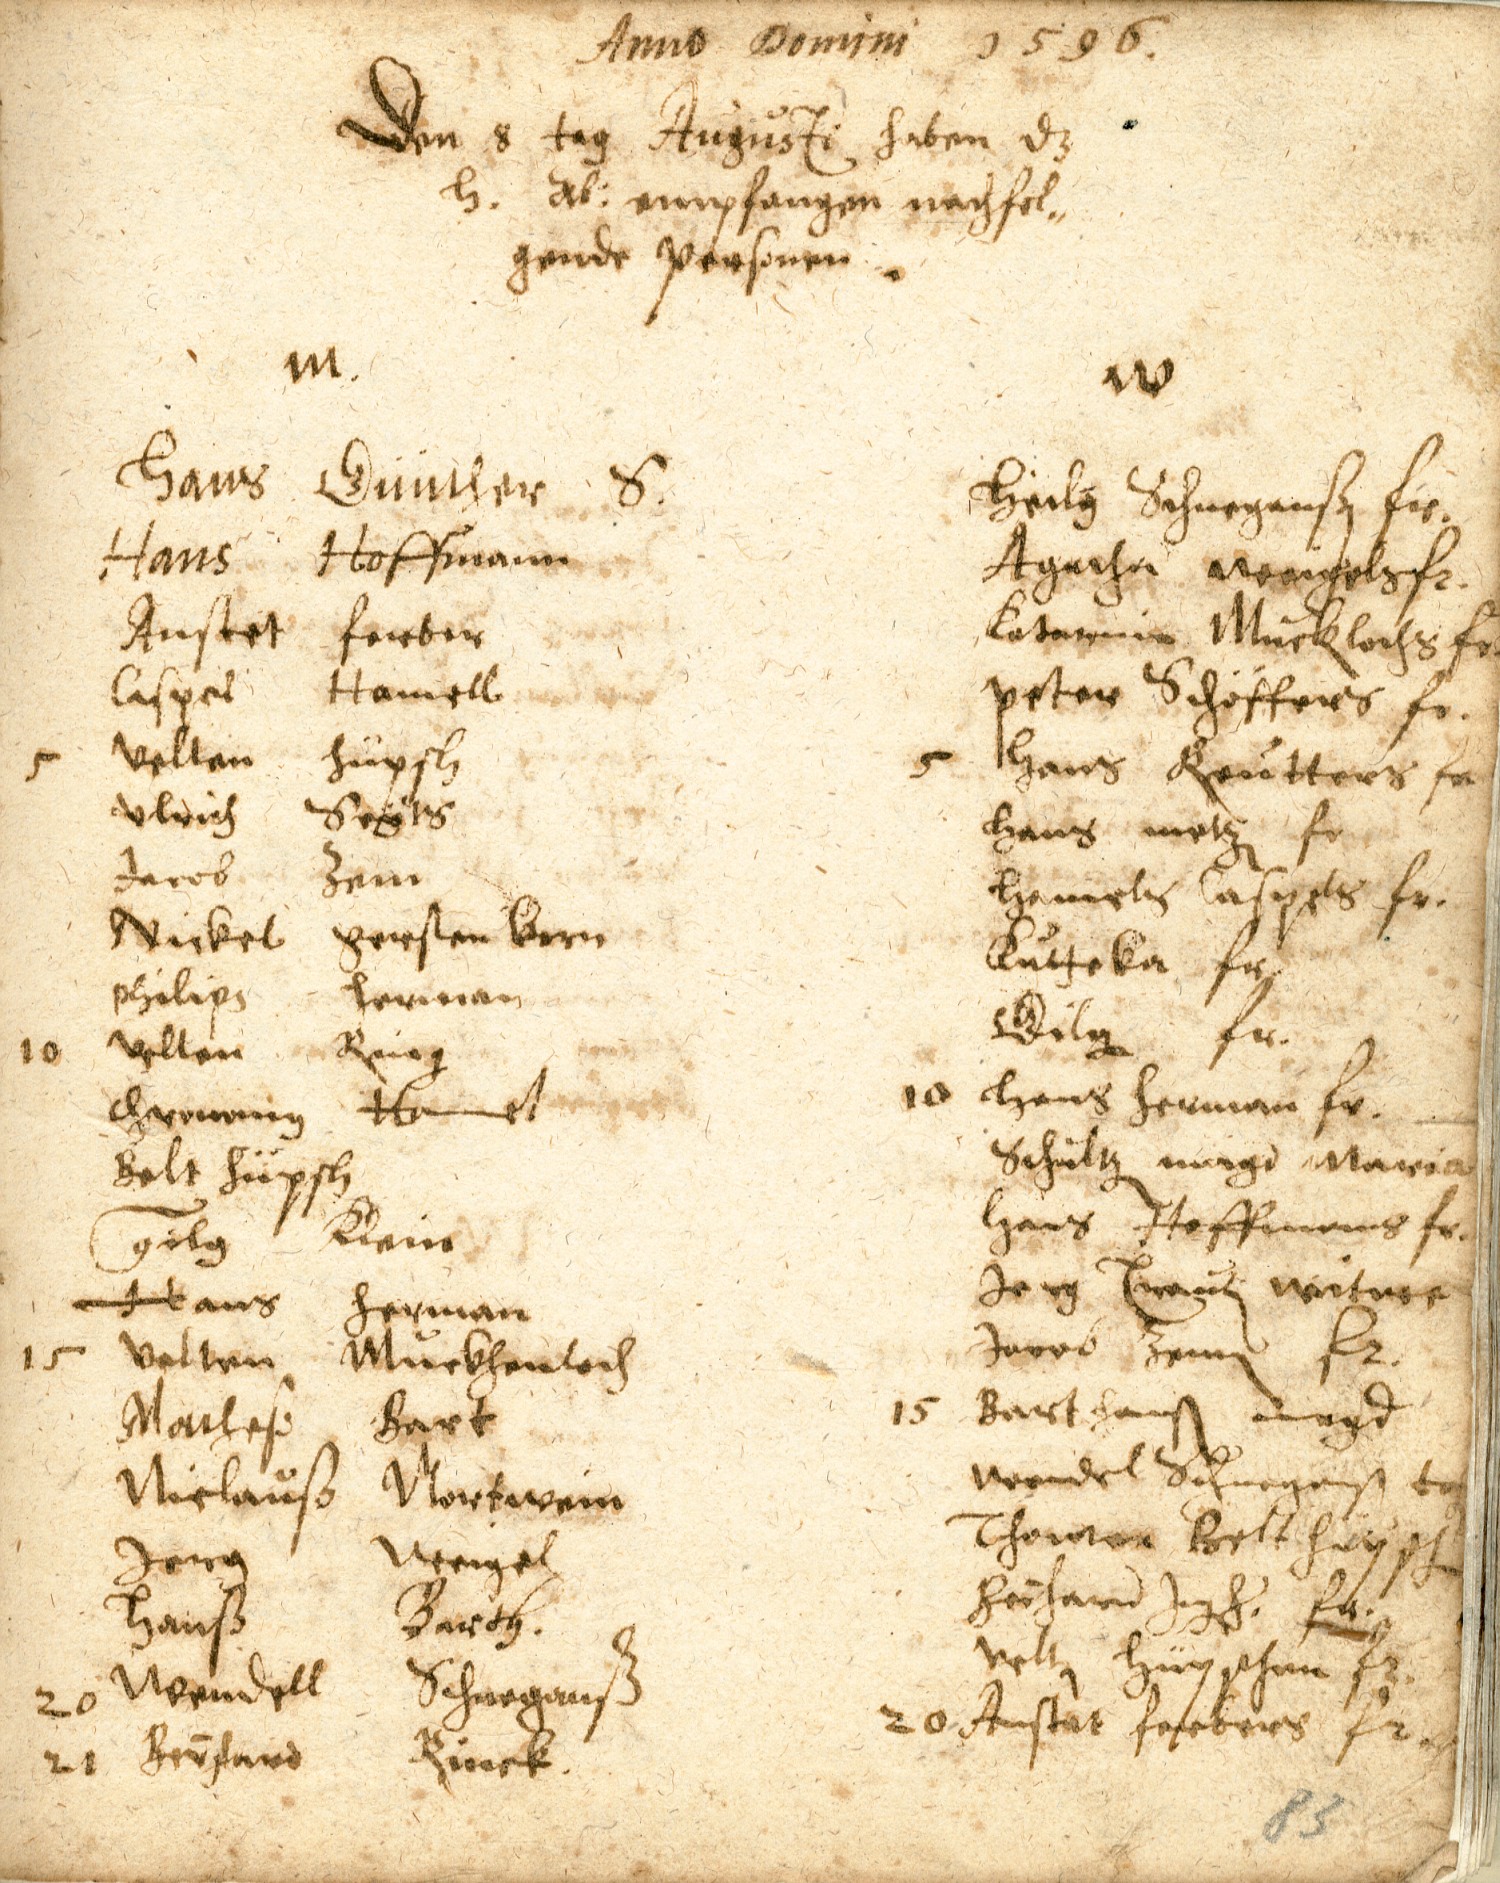 Anno Domini 1596.
Den 8 tag Augusti haben dz
h. Ab: empfangen nachfol„
gende Personen.
M.
Hans Günther S.
Hans Hoffmann
Anstet ferber
Caspel Hamell
5 Velten hüpsch
Ulrich
Jacob Zem
Nickel gersten korn
Philips herman
10 Velten Ring
Hamel
Belt hüpsch
Gilg Klein
Hans herman
15 Velten Muckhenloch
Matheß Bart
Niclauß Nortwein
Jerg Weigel
Hanß Barth.
20 Wendell Schneganß
21 Bernhard Rinck.
W
Heilg Schneganß fr.
Agatha Weigels fr.
Catarina Mucklochs fr.
Peter Schöffers fr.
5 Hans Reutters fr
Hans Metz fr
Hamels Caspels fr.
fr.
Gilg fr.
10 Hans Herman fr.
Schultz magd Maria
Hans Hoffmans fr.
Jerg witwe
Jacob Zem fr.
15 Bart hanß magd
Wendel Schneganß
Belt hüpsch
fr.
Velt hüpschen fr.
20 Anstat ferbers fr.
83